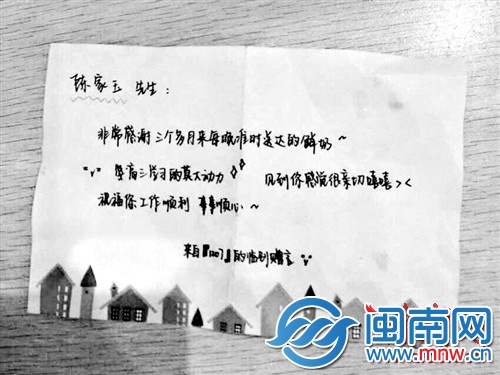 陈家玉 先生：
非常感谢三个多月来每晚准时送达的鲜奶～
是高三学习的莫大动力 见到你感觉很亲切嘻嘻><
祝福你工作顺利 事事顺心～
来自『1207』的临别赠言
闽南网
www.mnw.cn